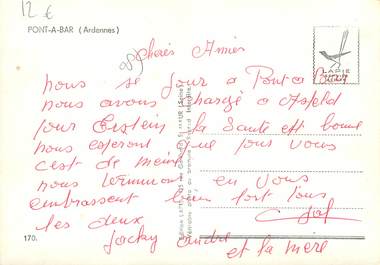 12 €
PONT-A-BAR (Ardennes)
chères Amies
nous se jour a Pont a
LAPIE
nous avons chargé a Asfeld
pour la Santé est bonne
nous esperont que pour vous
c'est de meme
nous terminon en vous
embrassent bien fort tous
les deux
Jacky andré et la mère
170.